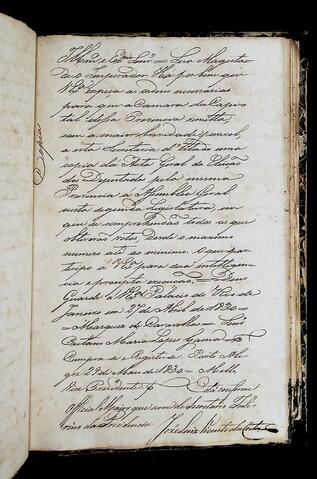 Copia
Illmo e Exmo Snr = Sua Magesta-
de o Imperador Ha por bem que
V Exa expeça as ordens necessarias
para que a Camara da Capi-
tal dessa Provincia remetta,
com a maior brevidade possivel
a esta Secretaria d'Estado uma
copia da Acta Geral da Eleição
dos Deputados pela mesma
Provincia a Assemblea Geral
nesta segunda Legislatura, em
que se comprehendão todos os que
obtiverão votos desde o maximo
numero até ao minimo. O que par-
ticipo a V Exa para sua intelligen-
cia e prompta execução = Deos
Guarde a V Exa Palacio do Rio de
Janeiro em 27 de Abril de 1830 =
Marquez de Caravellas = Snr
Caetano Maria Lopes Gama =
Cumpra-se e Registe-se Porto Ale-
gre 29 de Maio de 1830 = Mello
Vice Presidente
Está conforme
Official Maior que serve de Secretario Inte-
rino da Provincia
José Luis da Costa